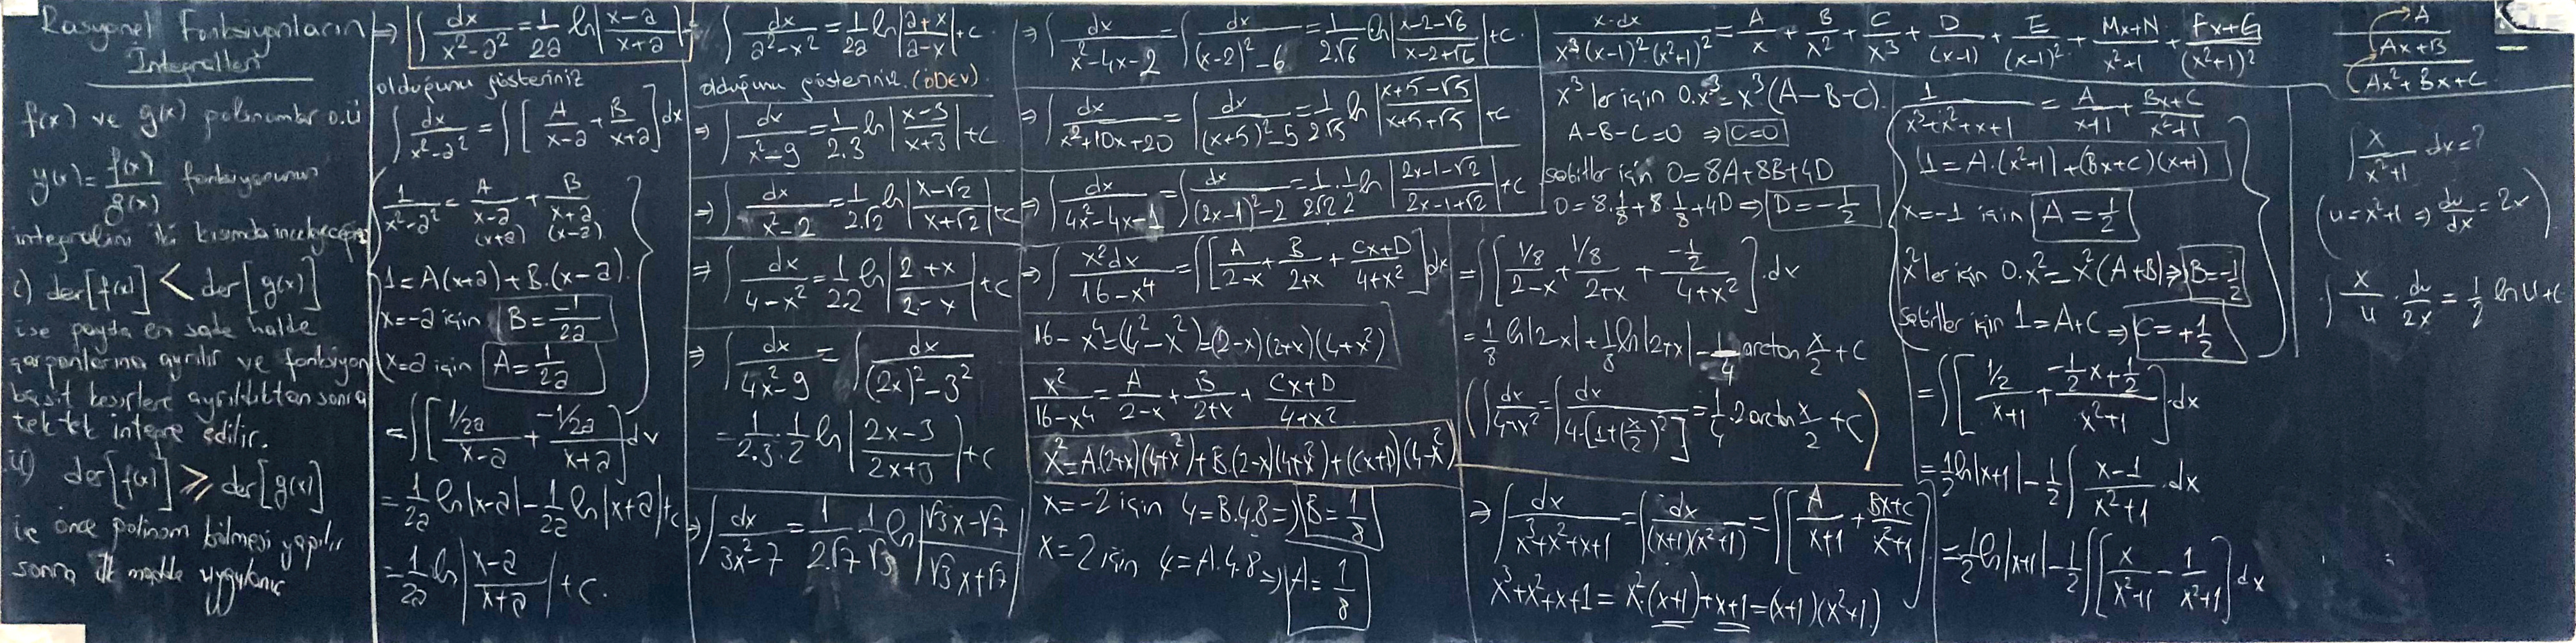 Rasyonel Fonksiyonların
İntegralleri
f(x) ve g(x) polinomlar o.ü
y(x) = f(x)/g(x) fonksiyonunun
integralini iki kısımda inceleyeceğiz
i) der[f(x)] < der[g(x)]
ise payda en sade halde
çarpanlarına ayrılır ve fonksiyon
basit kesirlere ayrıldıktan sonra
tek tek integre edilir.
ii) der[f(x)] ≥ der[g(x)]
ise önce polinom bölmesi yapılır
sonra ilk madde uygulanır
⇒ ∫ dx/(x²-a²) = 1/2a ln|(x-a)/(x+a)|
olduğunu gösteriniz
∫ dx/(x²-a²) = ∫[A/(x-a) + B/(x+a)]dx
1/(x²-a²) = A/(x-a) + B/(x+a)
(x+a) (x-a)
1 = A(x+a) + B.(x-a)
x=-a için B = -1/2a
x=a için A = 1/2a
= ∫[(1/2a)/(x-a) + (-1/2a)/(x+a)]dx
= 1/2a ln|x-a| - 1/2a ln|x+a| + c
= 1/2a ln|(x-a)/(x+a)| + c.
∫ dx/(a²-x²) = 1/2a ln|(a+x)/(a-x)| + c.
olduğunu gösteriniz. (ÖDEV)
⇒ ∫ dx/(x²-9) = 1/2.3 ln|(x-3)/(x+3)| + c
⇒ ∫ dx/(x²-2) = 1/2.√2 ln|(x-√2)/(x+√2)| + c
⇒ ∫ dx/(4-x²) = 1/2.2 ln|(2+x)/(2-x)| + c
⇒ ∫ dx/(4x²-9) = ∫ dx/((2x)²-3²)
= 1/2.3 . 1/2 ln|(2x-3)/(2x+3)| + c
⇒ ∫ dx/(3x²-7) = 1/2.√7 . 1/√3 ln|(√3x-√7)/(√3x+√7)|
⇒ ∫ dx/(x²-4x-2) = ∫ dx/((x-2)²-6) = 1/2.√6 ln|(x-2-√6)/(x-2+√6)| + c.
⇒ ∫ dx/(x²+10x+20) = ∫ dx/((x+5)²-5) = 1/2√5 ln|(x+5-√5)/(x+5+√5)| + c
⇒ ∫ dx/(4x²-4x-1) = ∫ dx/((2x-1)²-2) = 1/2√2 . 1/2 ln|(2x-1-√2)/(2x-1+√2)| + c
⇒ ∫ x²dx/(16-x⁴) = ∫[A/(2-x) + B/(2+x) + (Cx+D)/(4+x²)]dx
16-x⁴ = (4²-x²) = (2-x)(2+x)(4+x²)
x²/(16-x⁴) = A/(2-x) + B/(2+x) + (Cx+D)/(4+x²)
x² = A.(2+x)(4+x²) + B.(2-x)(4+x²) + (Cx+D)(4-x²)
x=-2 için 4=B.4.8 ⇒ B = 1/8
x=2 için 4=A.4.8 ⇒ A = 1/8
x.dx/(x³.(x-1)².(x²+1)²) = A/x + B/x² + C/x³ + D/(x-1) + E/(x-1)² + (Mx+N)/(x²+1) + (Fx+G)/(x²+1)²
x³ ler için 0.x³ = x³(A-B-C)
A-B-C=0 ⇒ C=0
sabitler için 0=8A+8B+4D
0 = 8.1/8 + 8.1/8 + 4D ⇒ D = -1/2
= ∫[(1/8)/(2-x) + (1/8)/(2+x) + (-1/2)/(4+x²)].dx
= 1/8 ln|2-x| + 1/8 ln|2+x| - 1/4 arctan x/2 + c
(∫ dx/(4+x²) = ∫ dx/(4.[1+(x/2)²]) = 1/4 . 2 arctan x/2 + c)
⇒ ∫ dx/(x³+x²+x+1) = ∫ dx/((x+1)(x²+1)) = ∫[A/(x+1) + (Bx+C)/(x²+1)]
x³+x²+x+1 = x².(x+1)+x+1 = (x+1)(x²+1)
1/(x³+x²+x+1) = A/(x+1) + (Bx+C)/(x²+1)
1 = A.(x²+1) + (Bx+C)(x+1)
x=-1 için A = 1/2
x² ler için 0.x² = x²(A+B) ⇒ B = -1/2
sabitler için 1=A+C ⇒ C = +1/2
= ∫[(1/2)/(x+1) + (-1/2x+1/2)/(x²+1)].dx
= 1/2 ln|x+1| - 1/2 ∫ (x-1)/(x²+1) .dx
= 1/2 ln|x+1| - 1/2 ∫[x/(x²+1) - 1/(x²+1)]dx
A/(Ax+B)
(Ax²+Bx+C
∫ x/(x²+1) dx = ?
(u=x²+1 ⇒ du/dx = 2x)
∫ x/u . du/2x = 1/2 ln u + c